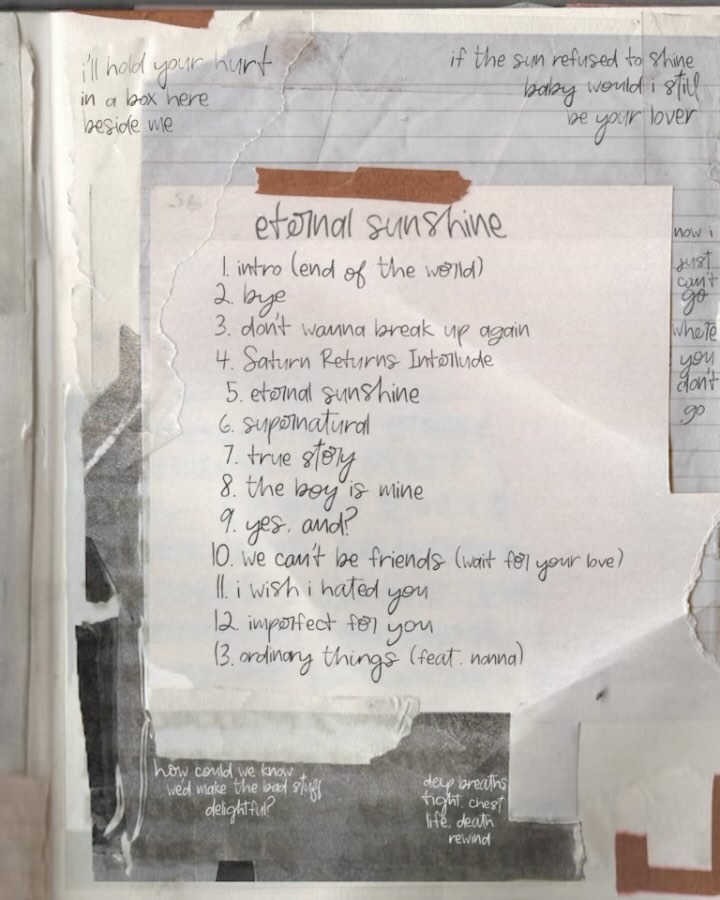 i'll hold your hurt
in a box here
beside me
if the sun refused to shine
baby would i still
be your lover
eternal sunshine
1. intro (end of the world)
2. bye
3. don't wanna break up again
4. Saturn Returns Interlude
5. eternal sunshine
6. supernatural
7. true story
8. the boy is mine
9. yes, and?
10. we can't be friends (wait for your love)
11. i wish i hated you
12. imperfect for you
13. ordinary things (feat. nonna)
now i
just
can't
go
where
you
don't
go
how could we know
we'd make the bad stuff
delightful?
deep breaths
tight. chest
life. death
rewind